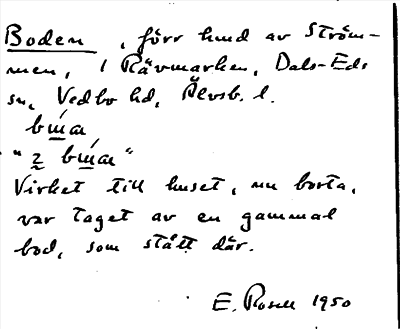 Boden, förr hmd av Ström-
men, i Rävmarken, Dals-Eds
sn, Vedbo hd, Älvsb. l.
Virket till huset, nu borta,
var taget av en gammal
bod, som stått där.
E. Rosell 1950